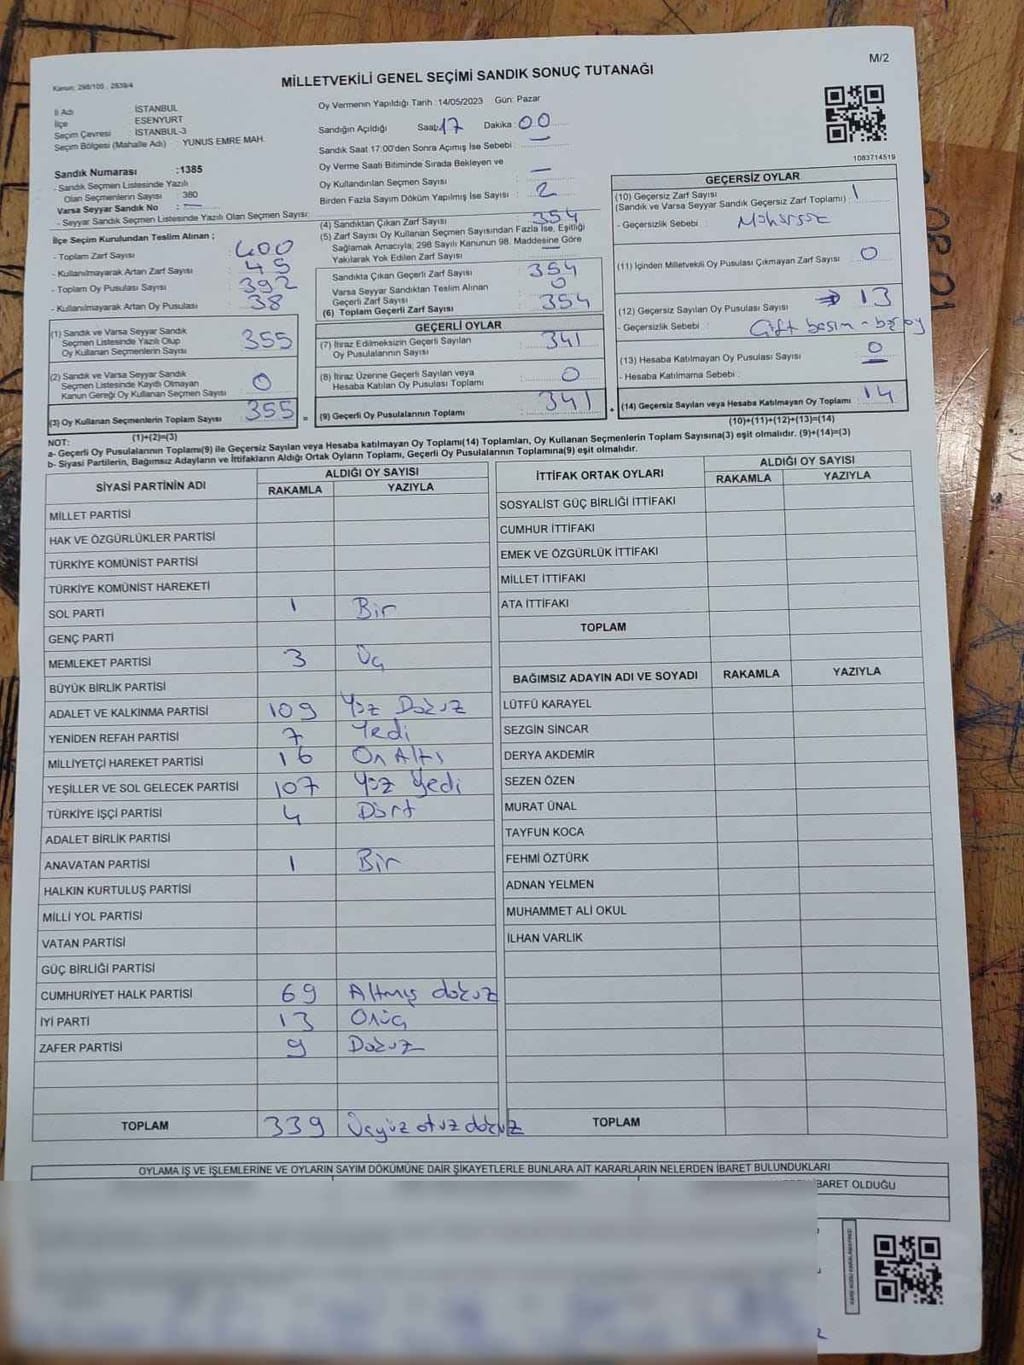 M/2
Kanun: 298/105 , 2839/4
MİLLETVEKİLİ GENEL SEÇİMİ SANDIK SONUÇ TUTANAĞI
İl Adı İSTANBUL
İlçe ESENYURT
Seçim Çevresi : İSTANBUL-3
Seçim Bölgesi (Mahalle Adı) YUNUS EMRE MAH.
Sandık Numarası :1385
- Sandık Seçmen Listesinde Yazılı
Olan Seçmenlerin Sayısı : 380
Varsa Seyyar Sandık No : —
- Seyyar Sandık Seçmen Listesinde Yazılı Olan Seçmen Sayısı:
İlçe Seçim Kurulundan Teslim Alınan ;
- Toplam Zarf Sayısı 400
- Kullanılmayarak Artan Zarf Sayısı 45
- Toplam Oy Pusulası Sayısı 392
- Kullanılmayarak Artan Oy Pusulası 38
(1) Sandık ve Varsa Seyyar Sandık
Seçmen Listesinde Yazılı Olup
Oy Kullanan Seçmenlerin Sayısı 355
(2) Sandık ve Varsa Seyyar Sandık
Seçmen Listesinde Kayıtlı Olmayan
Kanun Gereği Oy Kullanan Seçmen Sayısı 0
(3) Oy Kullanan Seçmenlerin Toplam Sayısı 355
(1)+(2)=(3)
Oy Vermenin Yapıldığı Tarih :14/05/2023 Gün: Pazar
Sandığın Açıldığı Saat: 17 Dakika : 00
Sandık Saat 17:00'den Sonra Açımış İse Sebebi : —
Oy Verme Saati Bitiminde Sırada Bekleyen ve
Oy Kullandırılan Seçmen Sayısı —
Birden Fazla Sayım Döküm Yapılmış İse Sayısı : 2
(4) Sandıktan Çıkan Zarf Sayısı 354
(5) Zarf Sayısı Oy Kullanan Seçmen Sayısından Fazla İse, Eşitliği
Sağlamak Amacıyla; 298 Sayılı Kanunun 98. Maddesine Göre
Yakılarak Yok Edilen Zarf Sayısı —
Sandıkta Çıkan Geçerli Zarf Sayısı 354
Varsa Seyyar Sandıktan Teslim Alınan
Geçerli Zarf Sayısı 0
(6) Toplam Geçerli Zarf Sayısı 354
GEÇERLİ OYLAR
(7) İtiraz Edilmeksizin Geçerli Sayılan
Oy Pusulalarının Sayısı 341
(8) İtiraz Üzerine Geçerli Sayılan veya
Hesaba Katılan Oy Pusulası Toplamı 0
= (9) Geçerli Oy Pusulalarının Toplamı 341
1083714519
GEÇERSİZ OYLAR
(10) Geçersiz Zarf Sayısı
(Sandık ve Varsa Seyyar Sandık Geçersiz Zarf Toplamı) : 1
- Geçersizlik Sebebi : Mühürsüz
(11) İçinden Milletvekili Oy Pusulası Çıkmayan Zarf Sayısı 0
(12) Geçersiz Sayılan Oy Pusulası Sayısı → 13
- Geçersizlik Sebebi : Çift basım - boş oy
(13) Hesaba Katılmayan Oy Pusulası Sayısı 0
- Hesaba Katılmama Sebebi :
+ (14) Geçersiz Sayılan veya Hesaba Katılmayan Oy Toplamı 14
(10)+(11)+(12)+(13)=(14)
NOT:
a- Geçerli Oy Pusulalarının Toplamı(9) ile Geçersiz Sayılan veya Hesaba katılmayan Oy Toplamı(14) Toplamları, Oy Kullanan Seçmenlerin Toplam Sayısına(3) eşit olmalıdır. (9)+(14)=(3)
b- Siyasi Partilerin, Bağımsız Adayların ve İttifakların Aldığı Ortak Oyların Toplamı, Geçerli Oy Pusulalarının Toplamına(9) eşit olmalıdır.
SİYASİ PARTİNİN ADI ALDIĞI OY SAYISI
RAKAMLA YAZIYLA
MİLLET PARTİSİ
HAK VE ÖZGÜRLÜKLER PARTİSİ
TÜRKİYE KOMÜNİST PARTİSİ
TÜRKİYE KOMÜNİST HAREKETİ
SOL PARTİ 1 Bir
GENÇ PARTİ
MEMLEKET PARTİSİ 3 Üç
BÜYÜK BİRLİK PARTİSİ
ADALET VE KALKINMA PARTİSİ 109 Yüz Dokuz
YENİDEN REFAH PARTİSİ 7 Yedi
MİLLİYETÇİ HAREKET PARTİSİ 16 On Altı
YEŞİLLER VE SOL GELECEK PARTİSİ 107 Yüz Yedi
TÜRKİYE İŞÇİ PARTİSİ 4 Dört
ADALET BİRLİK PARTİSİ
ANAVATAN PARTİSİ 1 Bir
HALKIN KURTULUŞ PARTİSİ
MİLLİ YOL PARTİSİ
VATAN PARTİSİ
GÜÇ BİRLİĞİ PARTİSİ
CUMHURİYET HALK PARTİSİ 69 Altmış dokuz
İYİ PARTİ 13 Onüç
ZAFER PARTİSİ 9 Dokuz
TOPLAM 339 Üçyüz otuz dokuz
İTTİFAK ORTAK OYLARI ALDIĞI OY SAYISI
RAKAMLA YAZIYLA
SOSYALİST GÜÇ BİRLİĞİ İTTİFAKI
CUMHUR İTTİFAKI
EMEK VE ÖZGÜRLÜK İTTİFAKI
MİLLET İTTİFAKI
ATA İTTİFAKI
TOPLAM
BAĞIMSIZ ADAYIN ADI VE SOYADI RAKAMLA YAZIYLA
LÜTFÜ KARAYEL
SEZGİN SİNCAR
DERYA AKDEMİR
SEZEN ÖZEN
MURAT ÜNAL
TAYFUN KOCA
FEHMİ ÖZTÜRK
ADNAN YELMEN
MUHAMMET ALİ OKUL
İLHAN VARLIK
TOPLAM
OYLAMA İŞ VE İŞLEMLERİNE VE OYLARIN SAYIM DÖKÜMÜNE DAİR ŞİKAYETLERLE BUNLARA AİT KARARLARIN NELERDEN İBARET BULUNDUKLARI
İBARET OLDUĞU